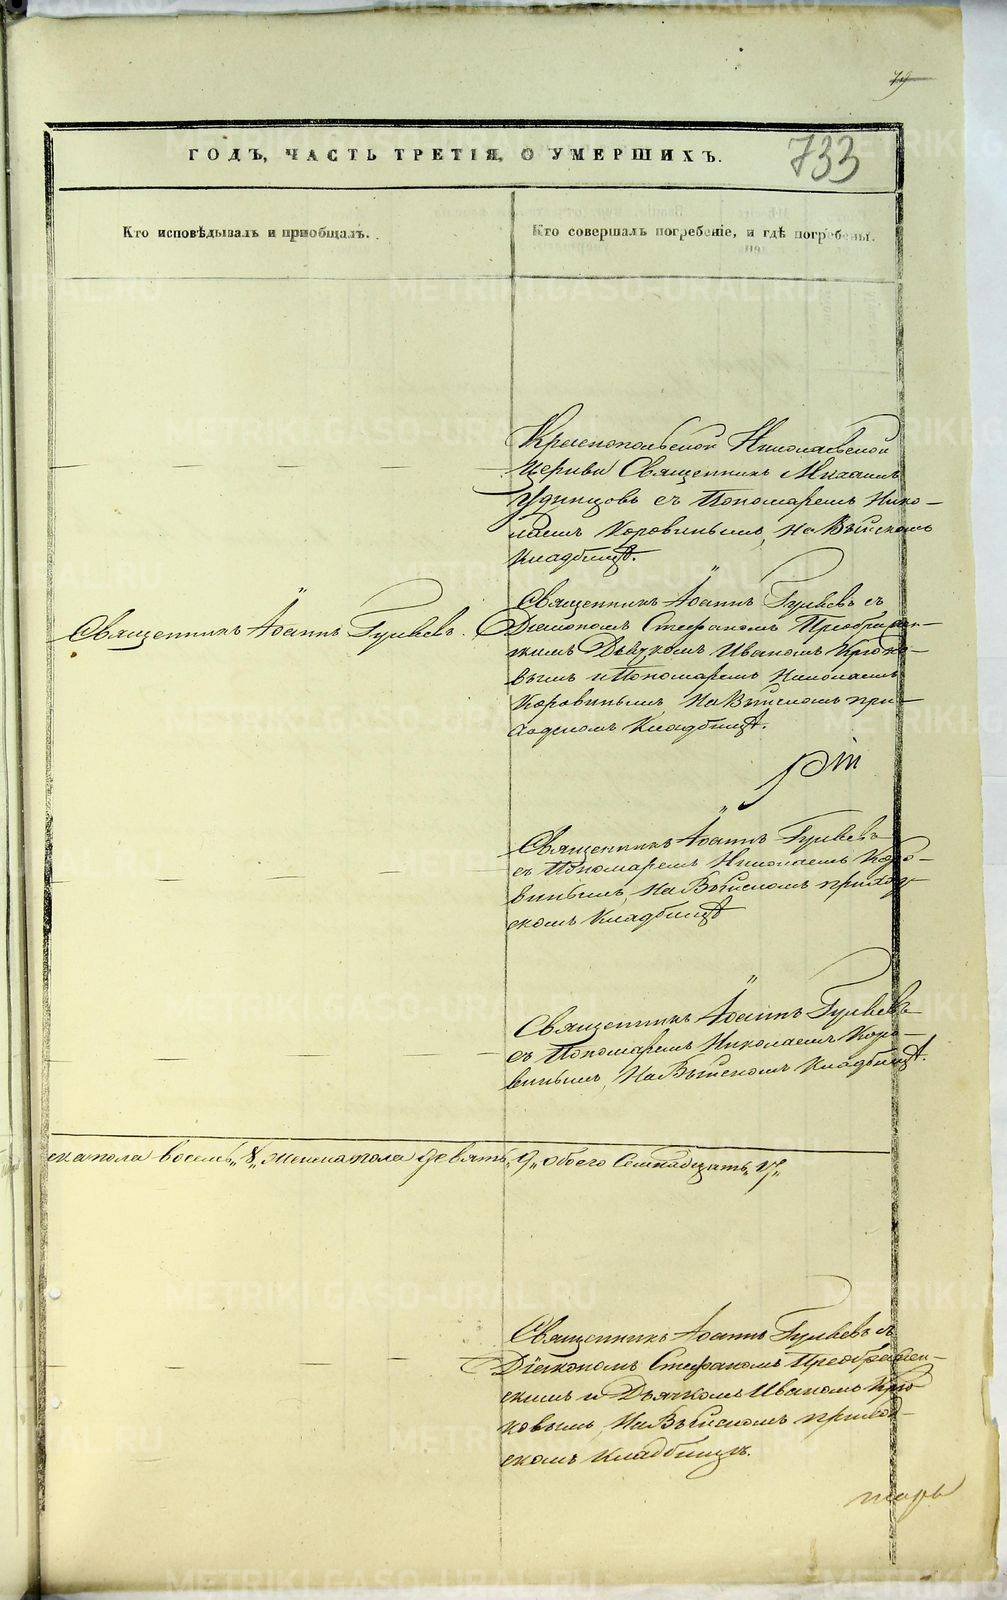 79
ГОДЪ, ЧАСТЬ ТРЕТІЯ, О УМЕРШИХЪ.
733
Кто исповѣдывалъ и пріобщалъ.
Кто совершалъ погребеніе, и гдѣ погребены.
Краснопольской Николаевской
Церкви Священникъ Михаилъ
Удинцовъ съ Пономаремъ Нико-
лаемъ Коровинымъ, на Выйскомъ
Кладбищѣ.
Священникъ Іоаннъ Гуляевъ.
Священникъ Іоаннъ Гуляевъ съ
Діакономъ Стефаномъ Преображен-
скимъ Дьячкомъ Иваномъ Крюко-
вымъ и Пономаремъ Николаемъ
Коровинымъ, На Выйскомъ при-
ходскомъ Кладбищѣ.
Священникъ Іоаннъ Гуляевъ
съ Пономаремъ Николаемъ Коро-
винымъ, На Выйскомъ приход-
скомъ Кладбищѣ
Священникъ Іоаннъ Гуляевъ
съ Пономаремъ Николаемъ Коро-
винымъ, На Выйскомъ Кладбищѣ.
ска пола восемь „8„ женска пола девять „9„ обоего Семнадцать „17„
Священникъ Іоаннъ Гуляевъ съ
Діакономъ Стефаномъ Преображен-
скимъ и Дьячкомъ Иваномъ Крю-
ковымъ, На Выйскомъ приход-
скомъ Кладбищѣ.
METRIKI.GASO-URAL.RU